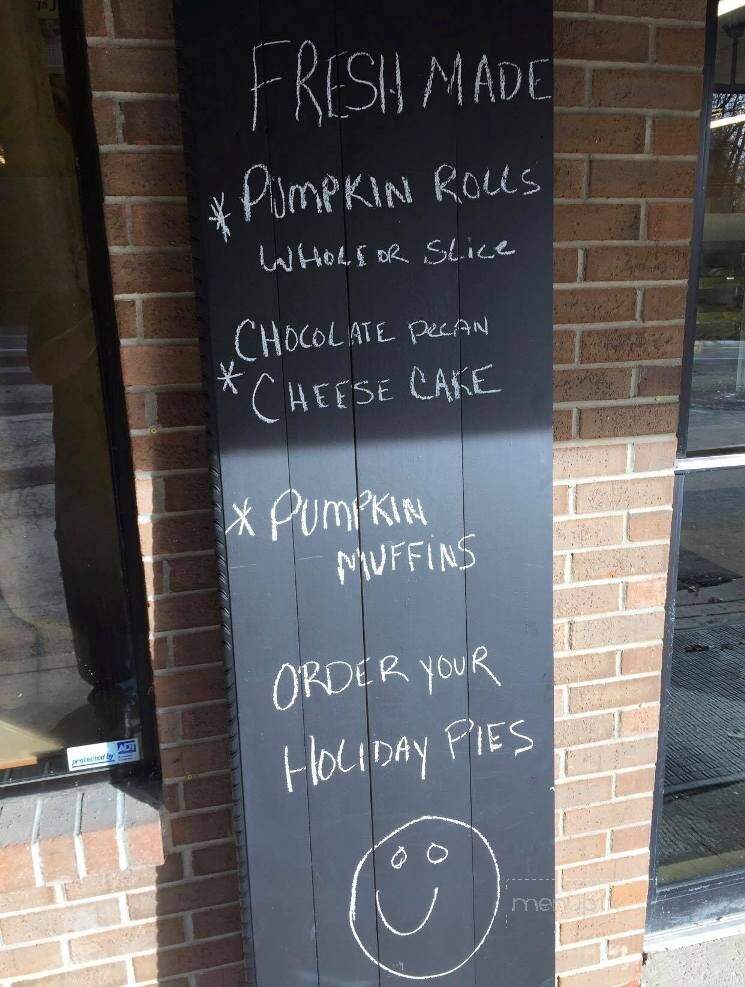 FRESH MADE
* PUMPKIN ROLLS
WHOLE OR SLICE
CHOCOLATE PECAN
* CHEESE CAKE
* PUMPKIN
MUFFINS
ORDER YOUR
HOLIDAY PIES
protected by ADT